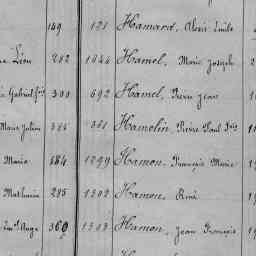 149 121 Hamard, Alexis Emile
Léon 202 1044 Hamel, Marie Joseph
Gabriel fois 300 692 Hamel, Pierre Jean
Marie Julien 361 Hamelin Pierre Paul fois
Marie 184 1299 Hamon, François Marie
Mathurin 295 1302 Hamon, René
Ange 360 1303 Hamon, Jean François